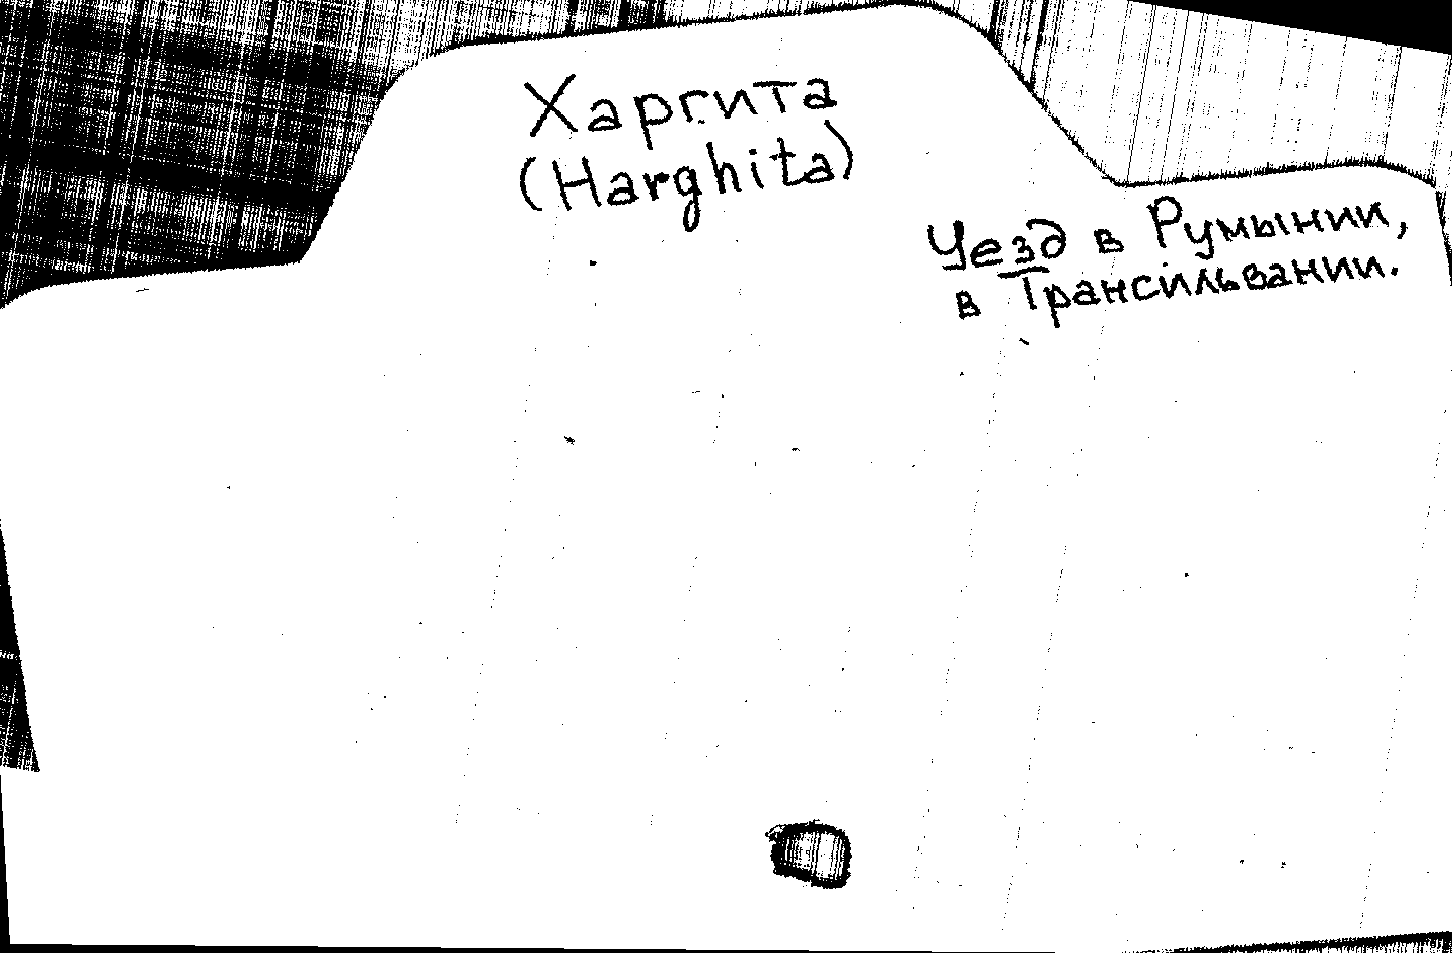 Харгита
(Harghita)
Уезд в Румынии,
в Трансильвании.